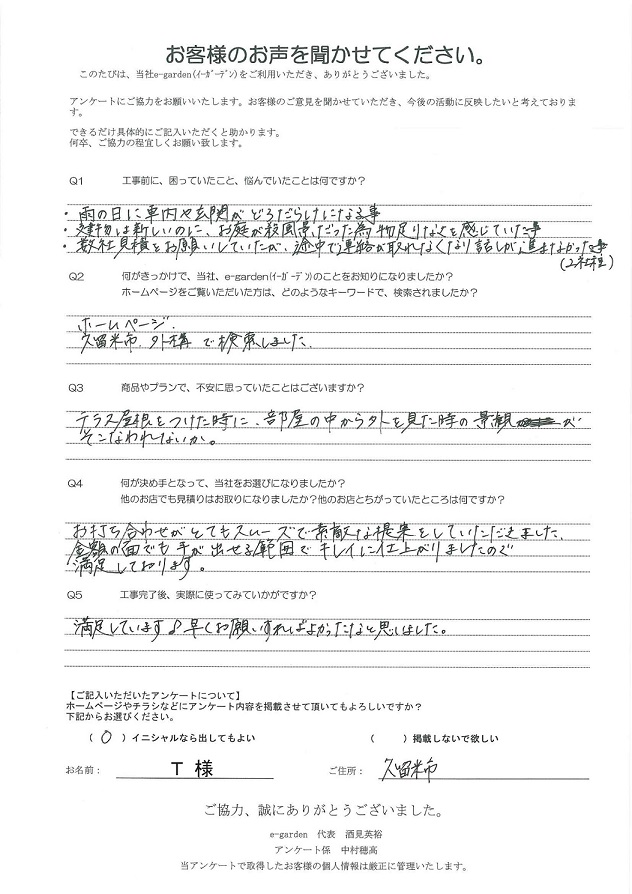 お客様のお声を聞かせてください。
このたびは、当社e-garden(ｲｰｶﾞｰﾃﾞﾝ)をご利用いただき、ありがとうございました。
アンケートにご協力をお願いいたします。お客様のご意見を聞かせていただき、今後の活動に反映したいと考えておりま
す。
できるだけ具体的にご記入いただくと助かります。
何卒、ご協力の程宜しくお願い致します。
Q1 工事前に、困っていたこと、悩んでいたことは何ですか？
・雨の日に車内や玄関がどろだらけになる事
・建物は新しいのに、お庭が殺風景だった為物足りなさを感じていた事
・数社見積をお願いしていたが、途中で連絡が取れなくなり話しが進まなかった事
(2社程)
Q2 何がきっかけで、当社、e-garden(ｲｰｶﾞｰﾃﾞﾝ)のことをお知りになりましたか？
ホームページをご覧いただいた方は、どのようなキーワードで、検索されましたか？
ホームページ.
久留米市.外構で検索しました.
Q3 商品やプランで、不安に思っていたことはございますか？
テラス屋根をつけた時に、部屋の中から外を見た時の景観が
そこなわれないか。
Q4 何が決め手となって、当社をお選びになりましたか？
他のお店でも見積りはお取りになりましたか？他のお店とちがっていたところは何ですか？
お打ち合わせがとてもスムーズで素敵な提案をしていただきました.
金額の面でも手が出せる範囲でキレイに仕上がりましたので
満足しております。
Q5 工事完了後、実際に使ってみていかがですか？
満足しています♪早くお願いすればよかったなと思いました。
【ご記入いただいたアンケートについて】
ホームページやチラシなどにアンケート内容を掲載させて頂いてもよろしいですか？
下記からお選びください。
( ○ ) イニシャルなら出してもよい ( ) 掲載しないで欲しい
お名前： T 様 ご住所： 久留米市
ご協力、誠にありがとうございました。
e-garden 代表 酒見英裕
アンケート係 中村穂高
当アンケートで取得したお客様の個人情報は厳正に管理いたします。